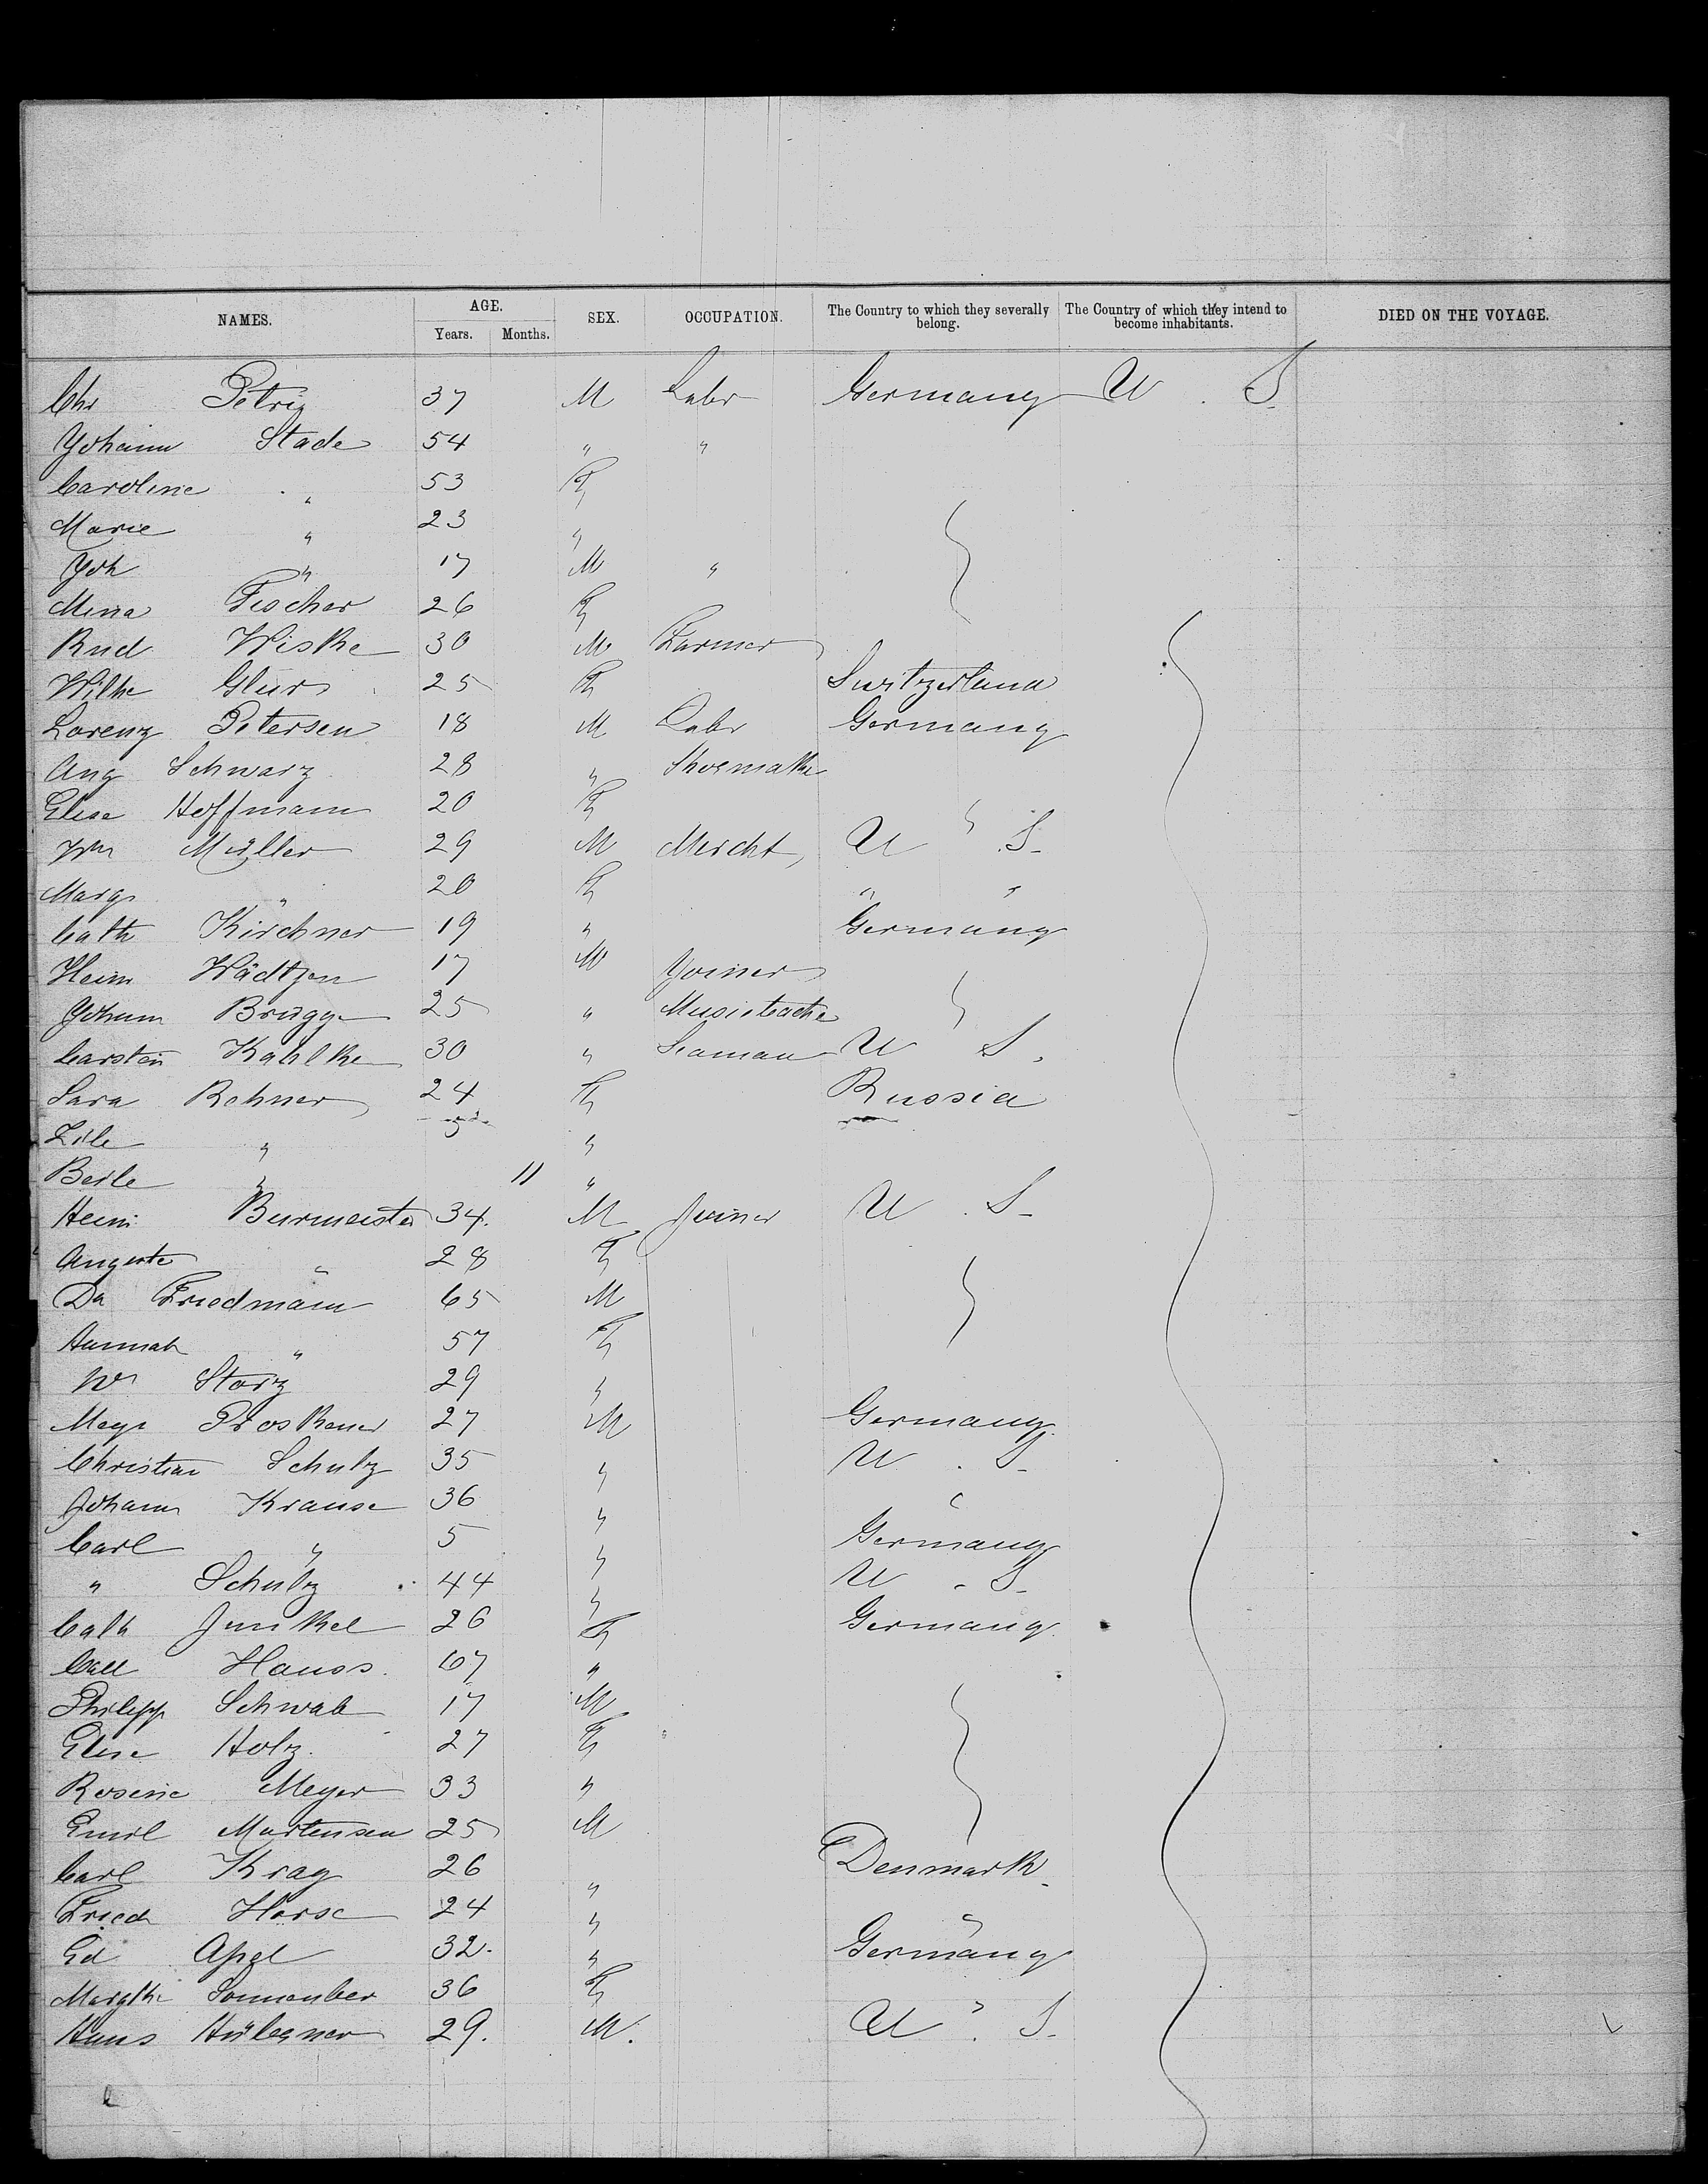 NAMES. AGE. Years. Months. SEX. OCCUPATION. The Country to which they severally belong. The Country of which they intend to become inhabitants. DIED ON THE VOYAGE.
Chr Petrig 37 M Labr Germany U. S.
Johann Stade 54 " "
Caroline " 53 F
Marie " 23 "
Joh " 17 M "
Mina Fischer 26 F
Rud Wiske 30 M Farmer
Wilhe Glur 25 F Switzerland
Lorenz Petersen 18 M Labr Germany
Aug Schwarz 28 " Shoemaker
Elise Hoffmann 20 F "
Wm Müller 29 M Mercht, U S.
Margr " 20 F " "
Cath Kirchner 19 " Germany
Heinr Wädtjen 17 M Joiner
Johann Brügge 25 " Musicteache
Carsten Kahlke 30 " Seaman U S.
Sara Rehner 24 F Russia
Zile " "
Beile " 11 "
Heinr Burmeister 34. M Joiner U. S.
Auguste " 28 F
Da Friedmann 65 M
Hannah " 57 F
Wm Storz 29 "
Meyr Proskauer 27 M Germany
Christian Schulz 35 " U. S.
Johann Krause 36 " "
Carl " 5 " Germany
" Schulz 44 " U. S.
Cath Junkel 26 F Germany
Hauss. 67 "
Philipp Schwab 17 M
Elise Holz. 27 F
Rosine Meyer 33 "
Emil Martensen 25 M
Carl Krag 26 " Denmark
Fried Horse 24 " "
Ed Apel 32. " Germany
Margthe 36 F "
Hans 29. M. U. S.